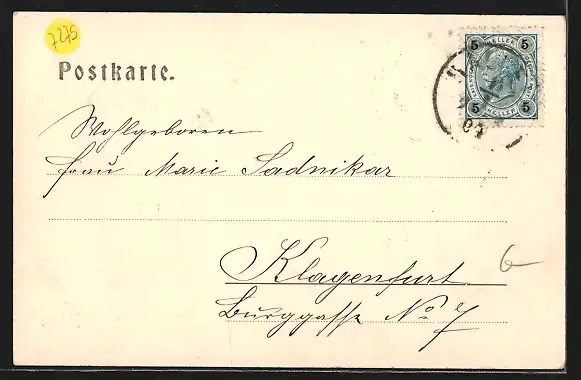 7275
Postkarte.
5 HELLER 5
5 HELLER 5
04
Wohlgeboren
Frau Marie Sadnikar
Klagenfurt
Burggasse No 7
6